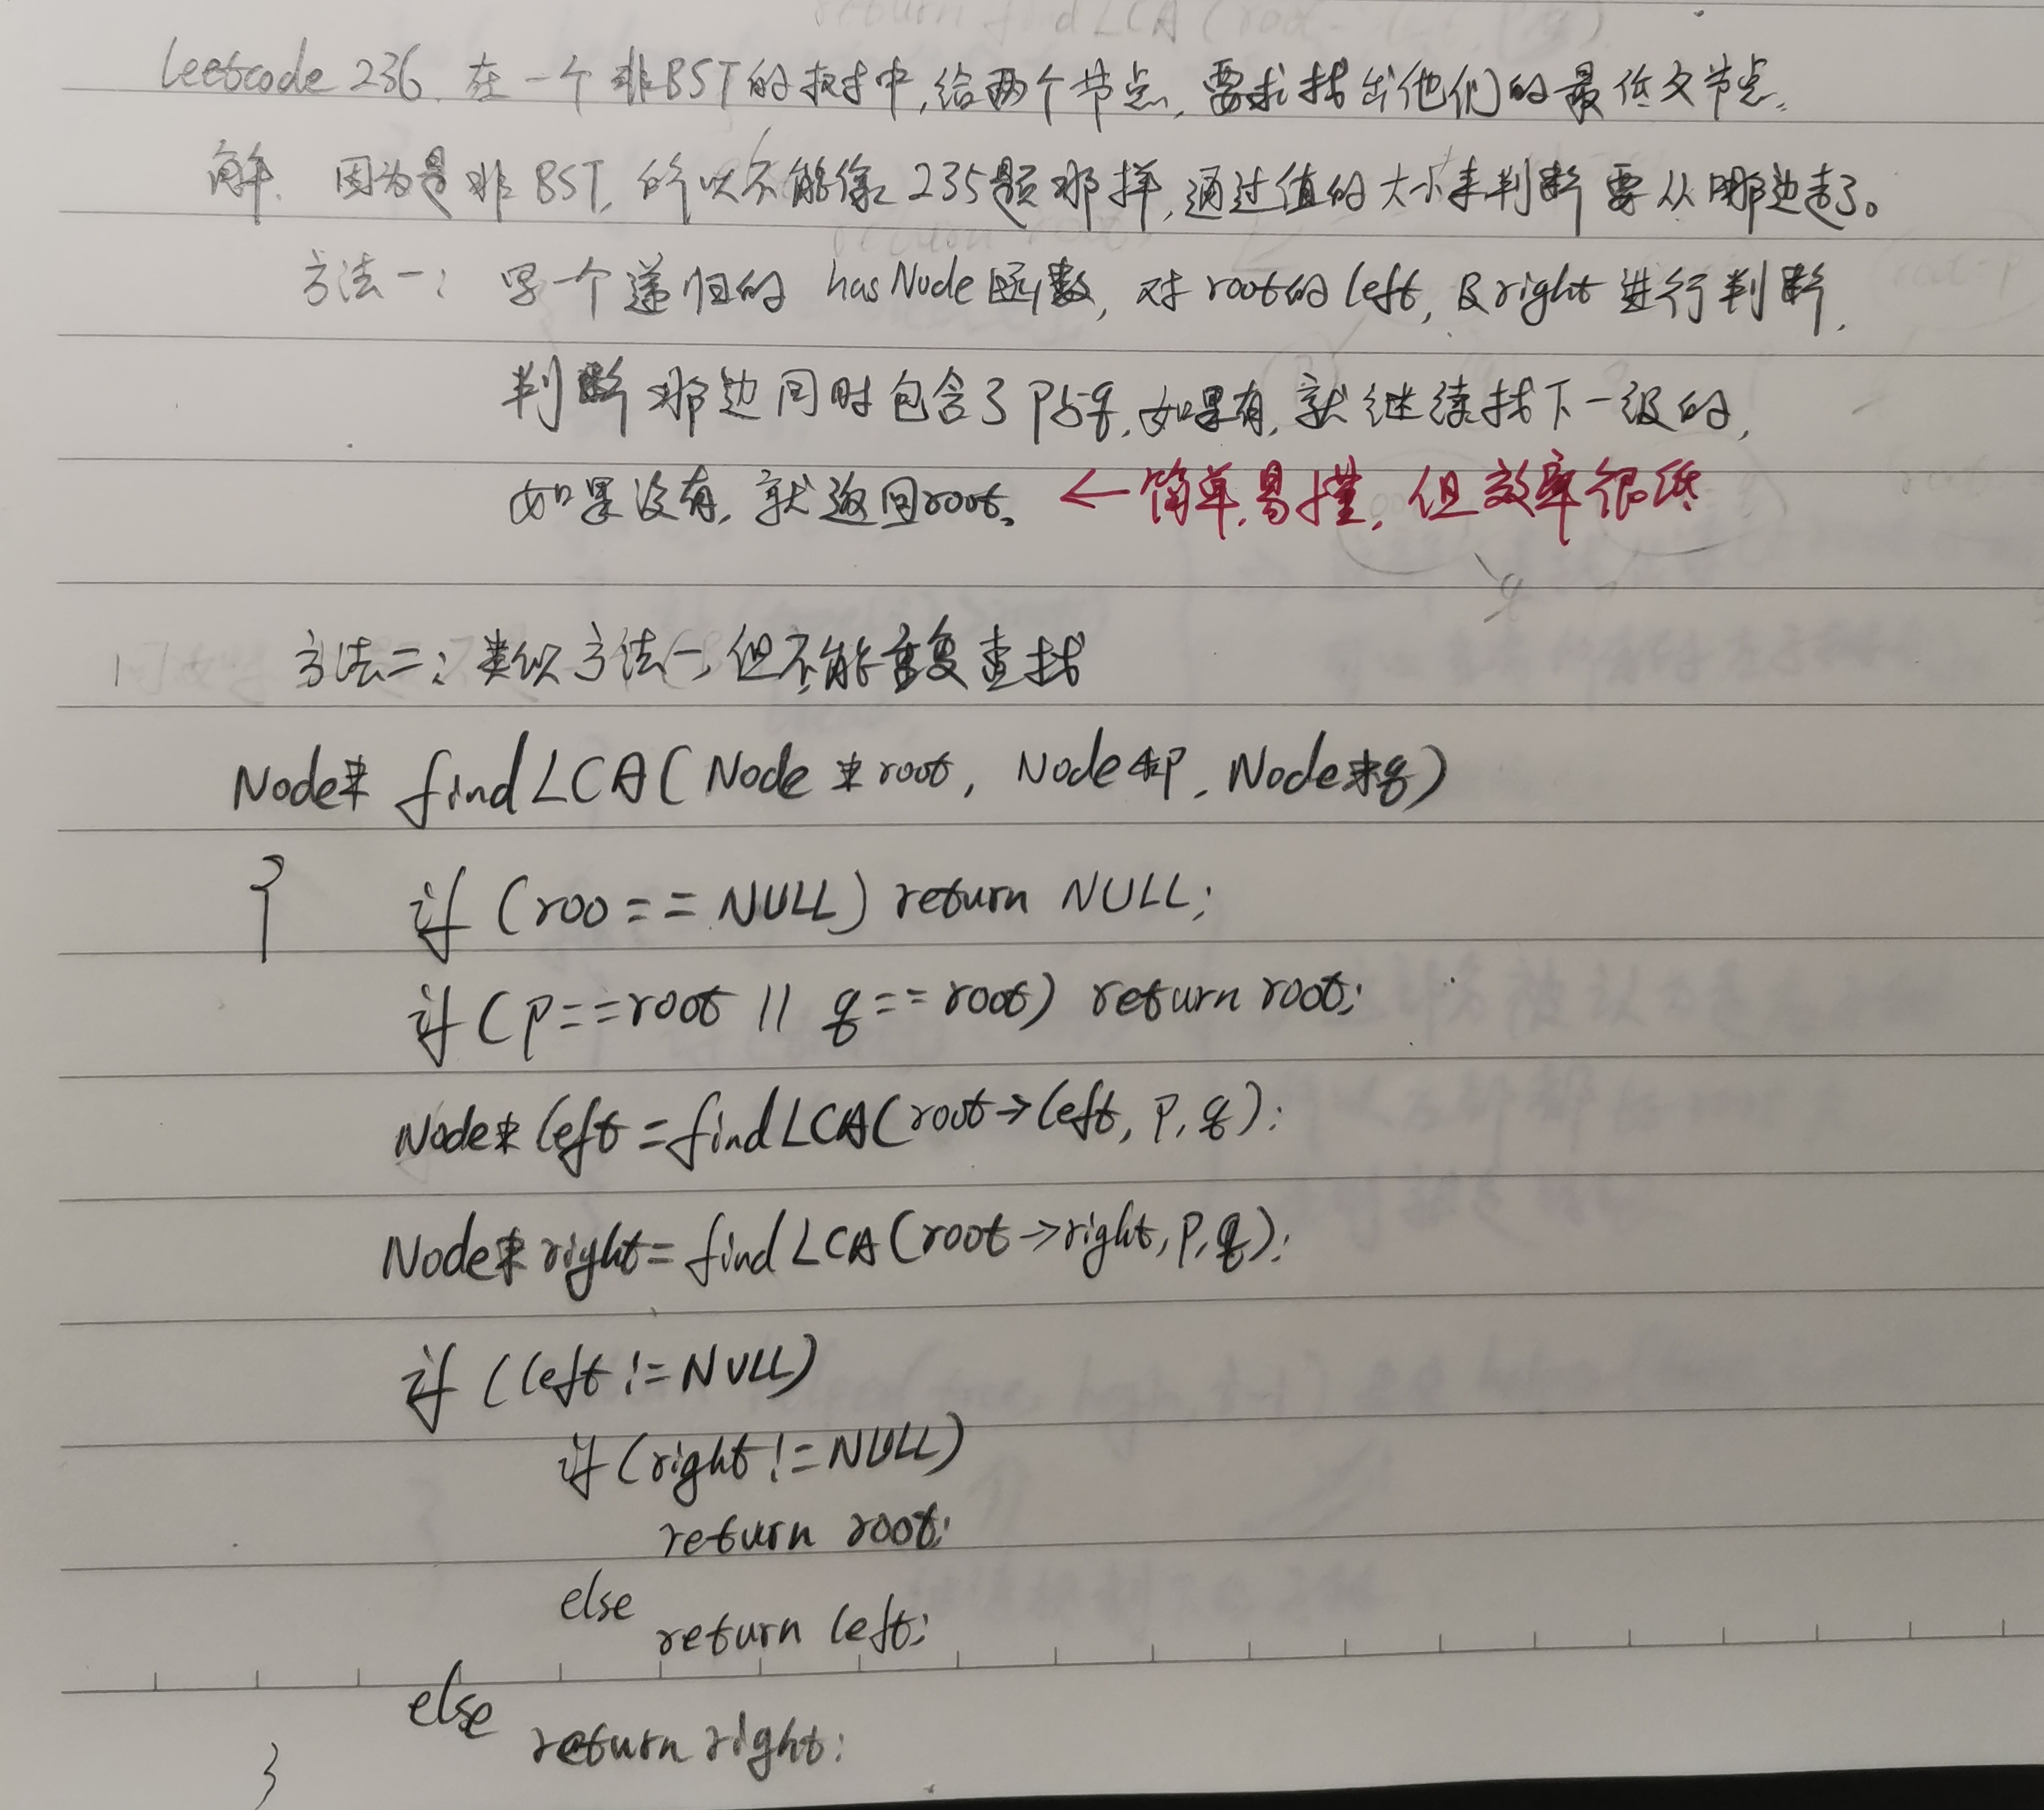 leetcode 236. 在一个非BST的树中,给两个节点,要求找出他们的最低父节点.
解. 因为是非BST, 所以不能像235题那样,通过值的大小来判断要从哪边走了。
方法一: 写个递归的 hasNode函数, 对root的left, 及right进行判断,
判断那边同时包含了p与q, 如果有, 就继续找下一级的,
如果没有, 就返回root。 ← 简单,易懂, 但效率很低
方法二: 类似方法一, 但不能重复查找
Node* findLCA(Node *root, Node *p, Node *q)
{ if (roo == NULL) return NULL;
if (p==root || q==root) return root;
Node* left = findLCA(root->left, p, q);
Node* right = findLCA(root->right, p, q);
if (left != NULL)
if (right != NULL)
return root;
else
return left;
else
return right;
}